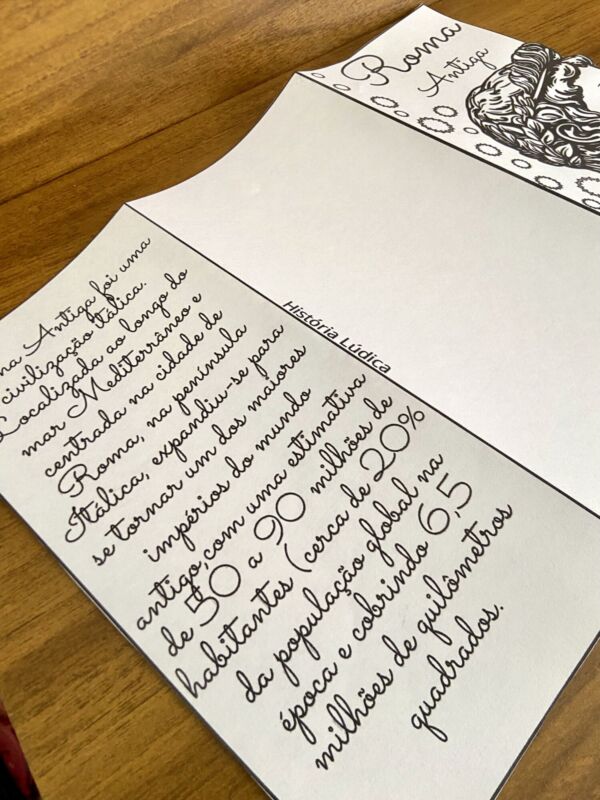 Roma
Antiga
História Lúdica
Antiga foi uma
civilização itálica.
Localizada ao longo do
mar Mediterrâneo e
centrada na cidade de
Roma, na península
Itálica, expandiu-se para
se tornar um dos maiores
impérios do mundo
antigo,com uma estimativa
de 50 a 90 milhões de
habitantes (cerca de 20%
da população global na
época e cobrindo 6,5
milhões de quilômetros
quadrados.